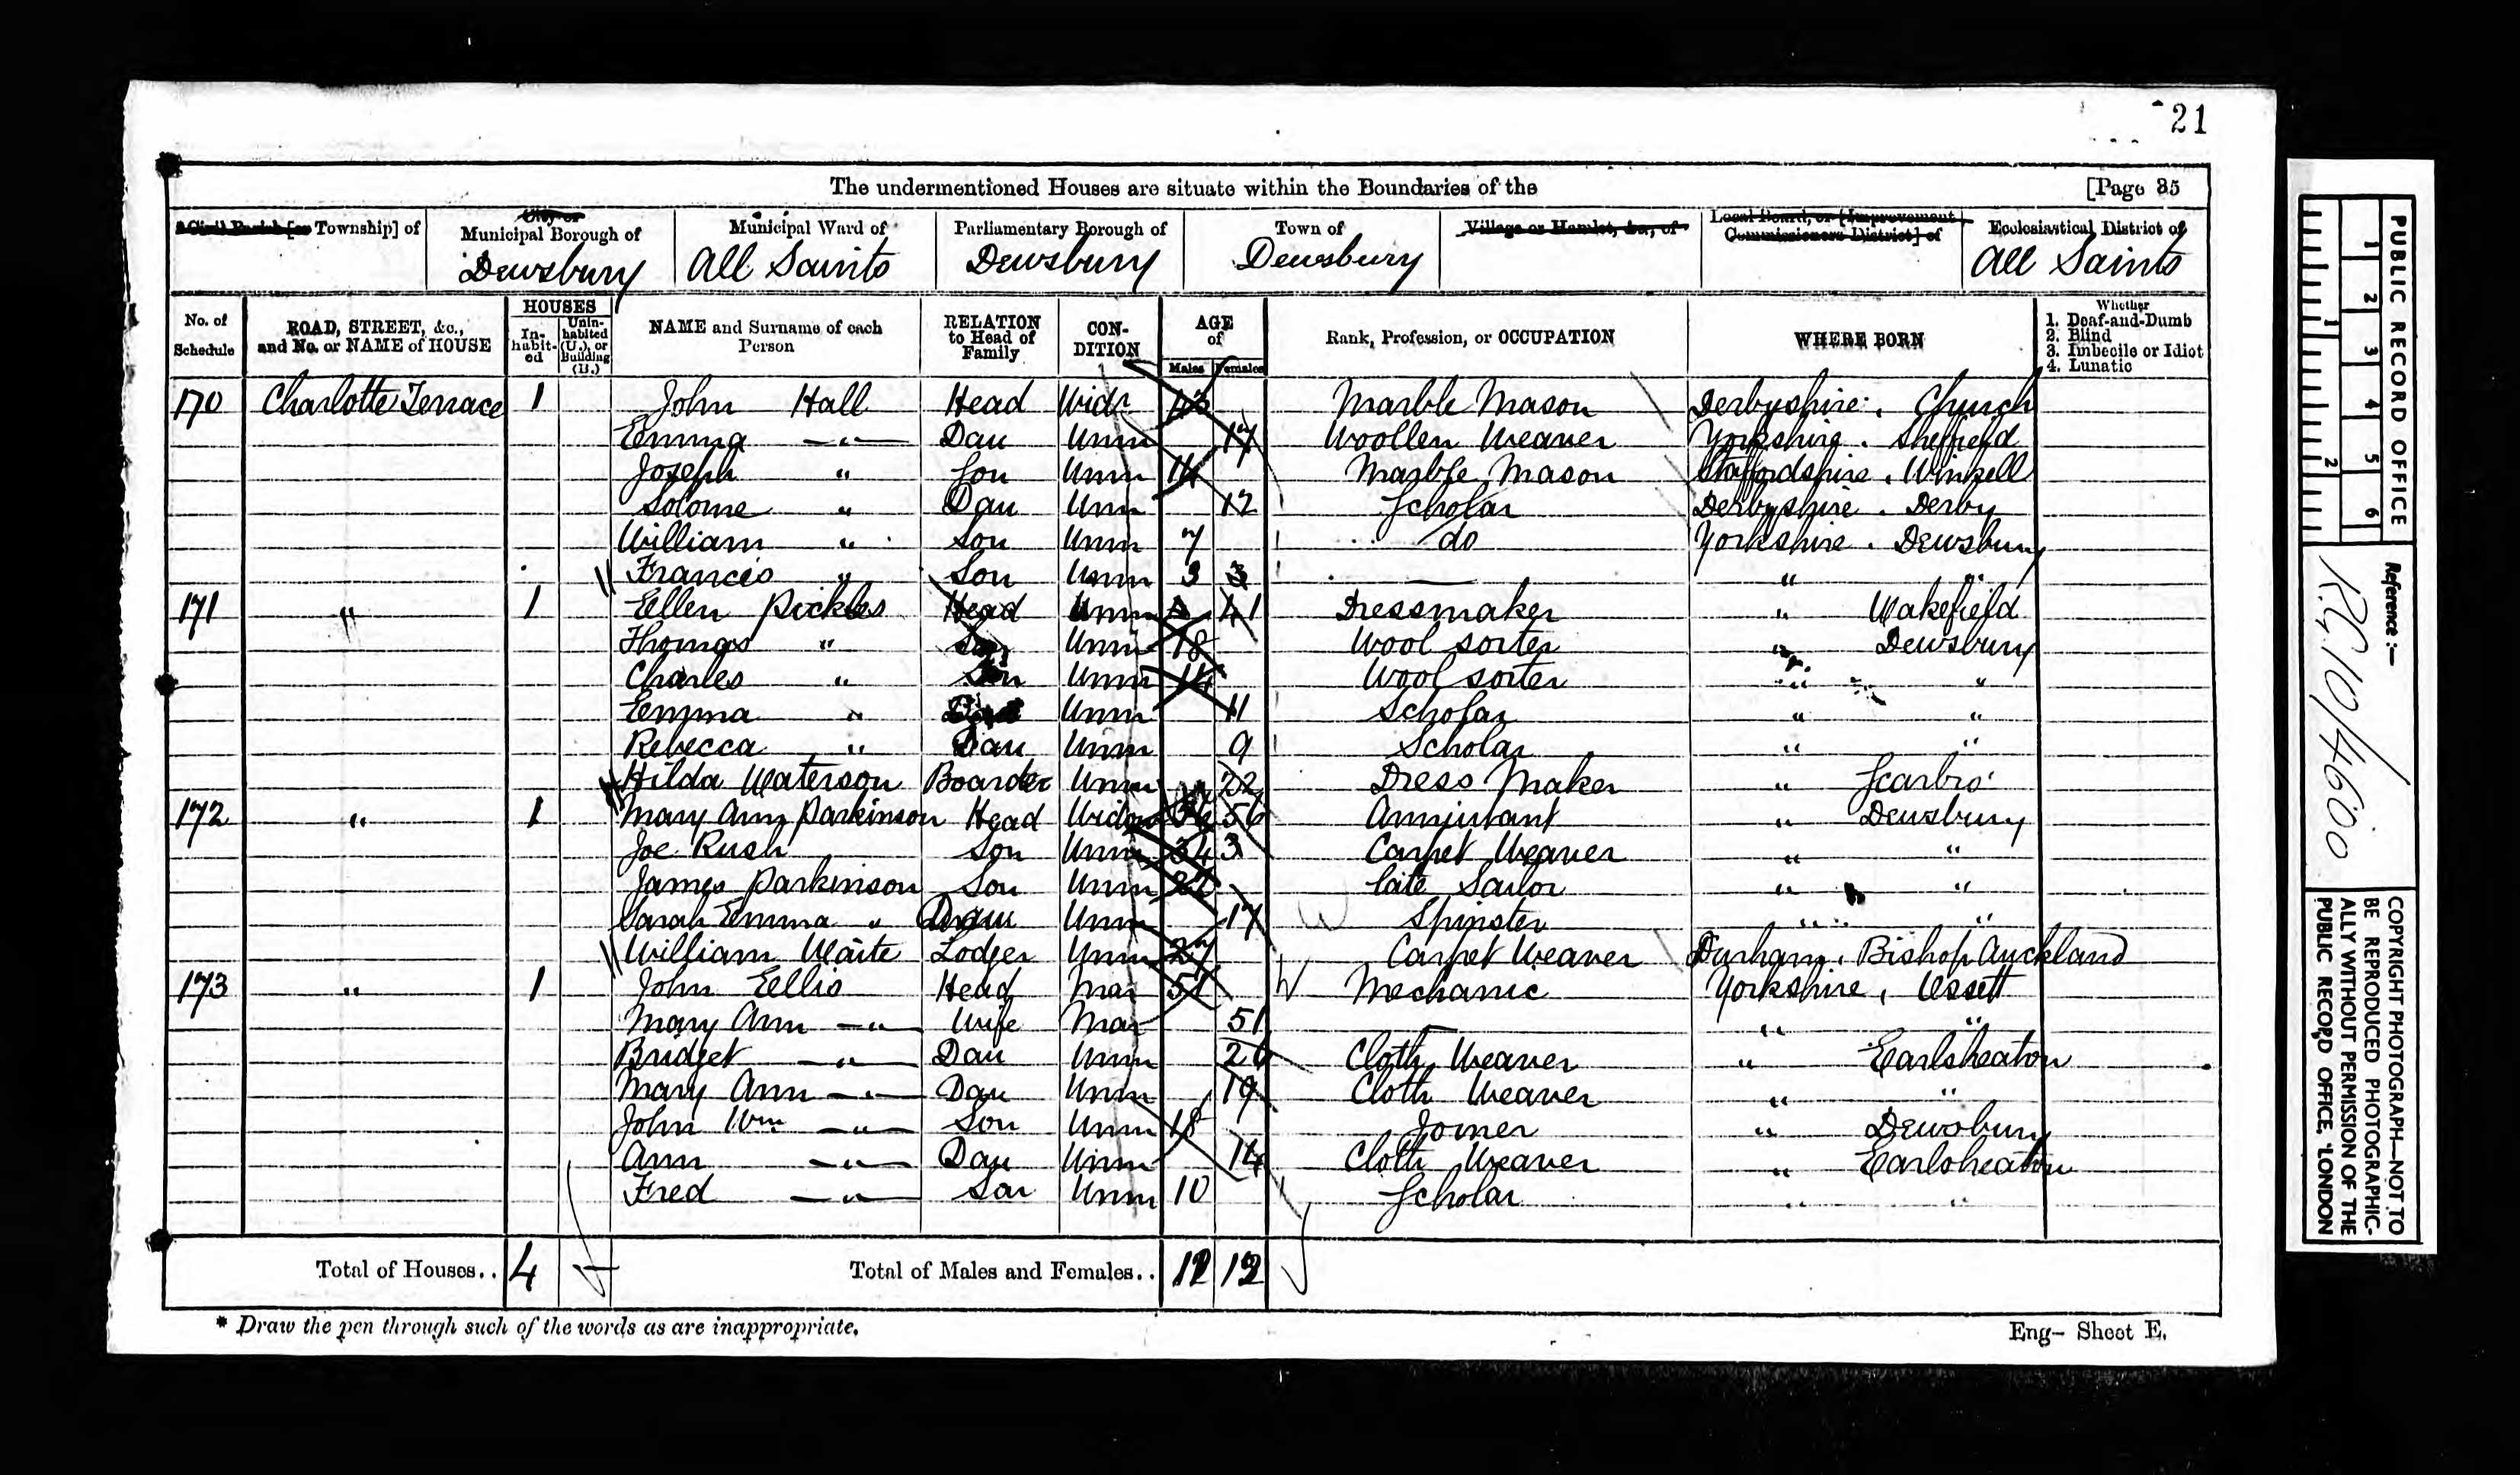 21
The undermentioned Houses are situate within the Boundaries of the [Page 35
Civil Parish [or Township] of
City or Municipal Borough of Dewsbury
Municipal Ward of All Saints
Parliamentary Borough of Dewsbury
Town of Dewsbury
Village or Hamlet, &c., of
Local Board, or [Improvement Commissioners District] of
Ecclesiastical District of All Saints
No. of Schedule
ROAD, STREET, &c., and No. or NAME of HOUSE
HOUSES
In-habit-ed
Unin-habited (U.), or Building (B.)
NAME and Surname of each Person
RELATION to Head of Family
CON-DITION
AGE of
Males Females
Rank, Profession, or OCCUPATION
WHERE BORN
Whether
1. Deaf-and-Dumb
2. Blind
3. Imbecile or Idiot
4. Lunatic
170 Charlotte Terrace 1 John Hall Head Widr 43 Marble Mason Derbyshire. Church
Emma —"— Dau Unm 17 Woollen Weaver Yorkshire. Sheffield
Joseph " Son Unm 14 Marble Mason Staffordshire.
Solome " Dau Unm 12 Scholar Derbyshire. Derby
William " Son Unm 7 do Yorkshire. Dewsbury
Francis " Son Unm 3 3 — " "
171 " 1 Ellen Pickles Head Unm 41 Dressmaker " Wakefield
Thomas " Unm 18 Wool sorter " Dewsbury
Charles " Son Unm 14 Wool sorter " "
Emma " Unm 11 Scholar " "
Rebecca " Dau Unm 9 Scholar " "
Hilda Waterson Boarder Unm 22 Dress Maker " Scarbro'
172 " 1 Mary Ann Parkinson Head Widow 56 Annuitant " Dewsbury
Joe Rush Son Unm 34 3 Carpet Weaver " "
James Parkinson Son Unm late Sailor " "
Sarah Emma " Dau Unm 17 Spinster " "
William Waite Lodger Unm 27 Carpet Weaver Durham. Bishop Auckland
173 " 1 John Ellis Head Mar 51 Mechanic Yorkshire. Ossett
Mary Ann —"— Wife Mar 51 " "
Bridget —"— Dau Unm 26 Cloth Weaver " Earlsheaton
Mary Ann —"— Dau Unm 19 Cloth Weaver " "
John Wm —"— Son Unm 18 Joiner " Dewsbury
Ann —"— Dau Unm 14 Cloth Weaver " Earlsheaton
Fred —"— Son Unm 10 Scholar " "
Total of Houses.. 4
Total of Males and Females.. 12 12
* Draw the pen through such of the words as are inappropriate.
Eng- Sheet E.
PUBLIC RECORD OFFICE
1 2 3 4 5 6
1 2
Reference :—
RG 10/4600
COPYRIGHT PHOTOGRAPH—NOT TO
BE REPRODUCED PHOTOGRAPHIC-
ALLY WITHOUT PERMISSION OF THE
PUBLIC RECORD OFFICE, LONDON